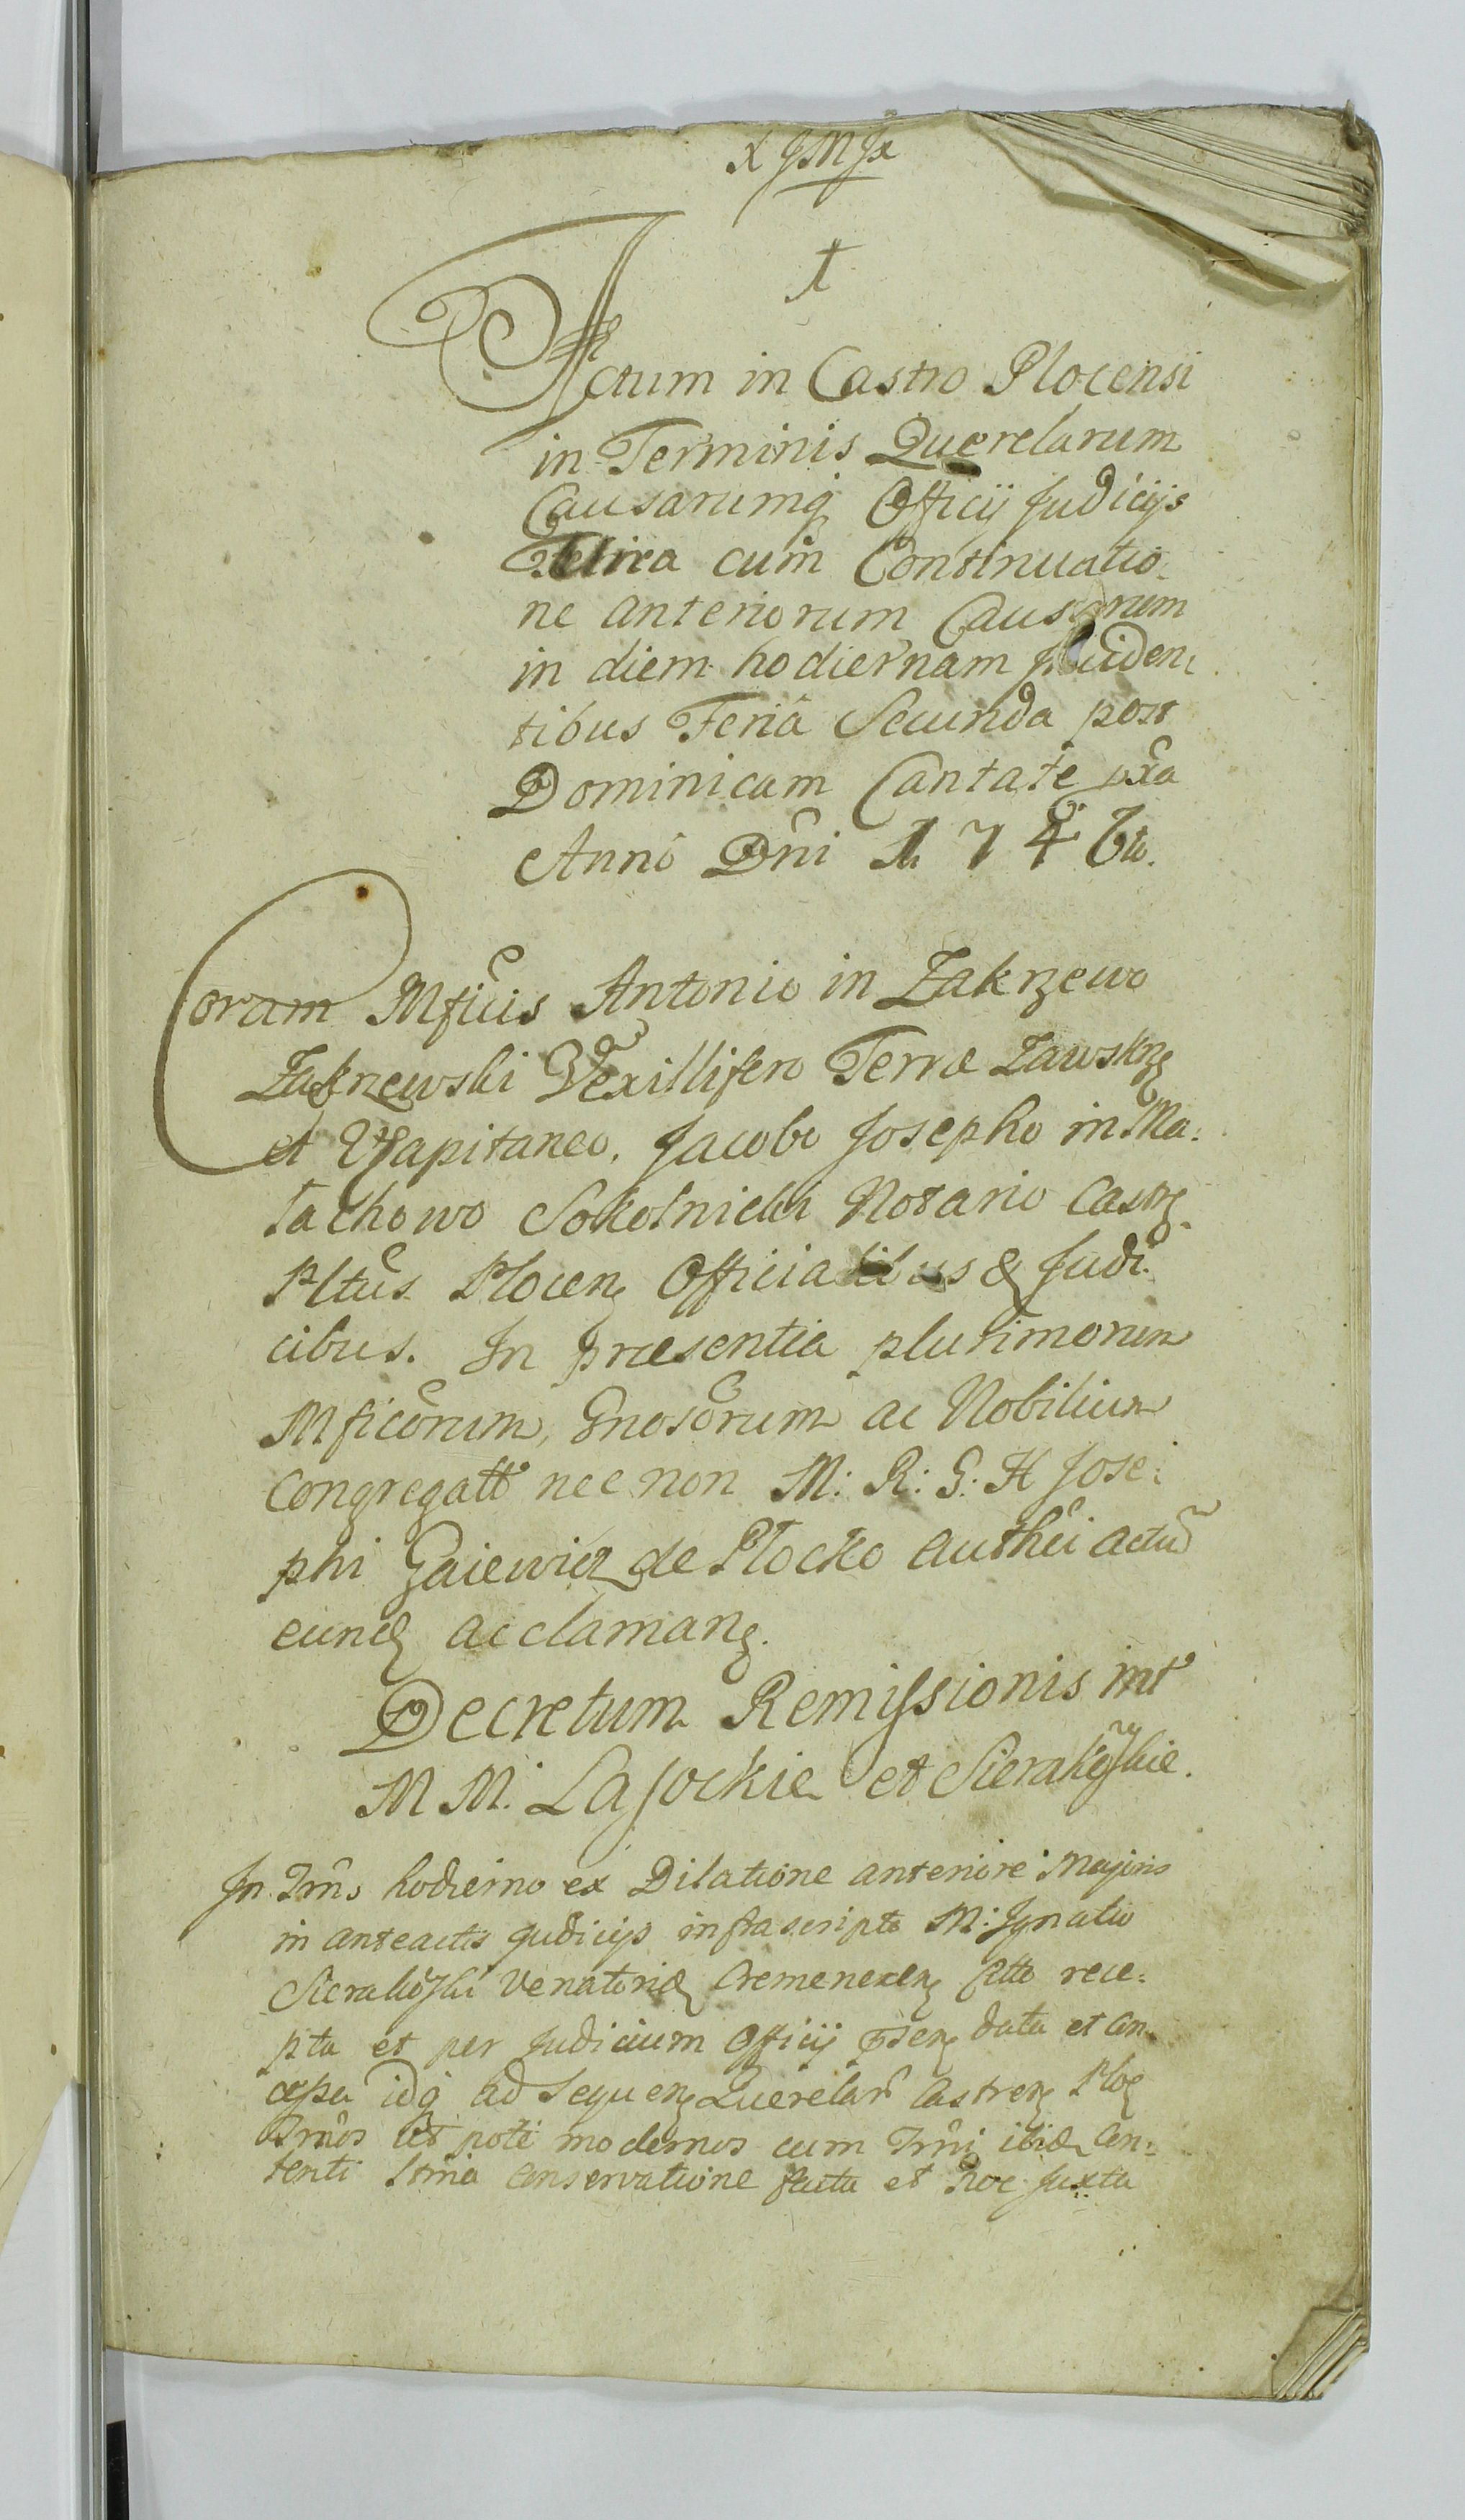 X JMJx
†
Actum in Castro Plocensi
in Terminis Querelarum
Causarumq Officij Judicijs
cum Continuatio:
ne anteriorum Causarum
in diem hodiernam
tibus Feria Secunda post
Dominicam Cantate pxa
Anno Dni 1746to.
Coram Mficis Antonio in Zakrzewo
Zakrzewski Vexillifero Terræ Zawskrz
et VCapitaneo, Jacobo Josepho in Ma:
łachowo Sokolnicki Notario Castr.
Pltus Plocen Officialibus & Judi:
cibus. In præsentia plurimorum
Mficorum, Gnosorum ac Nobilium
Congregatt nec non M: R: G: H Jose:
phi Gaiewicz de Płocko authci actu
eund acclaman.
Decretum Remissionis int
M M. Lasockie et Sierakoskie.
In Trno hodierno ex Dilatione anteriore Majoris
in anteactis Judicijs infrascripto M: Ignatio
Sierakoski Venatorid Cremenecen ftto rece:
pta et per Judicium Officij pden data et con:
cessa idq ad sequen Querelar Castren Ploc
Trnos ut pote modernos cum Trni ibid Con:
tenti conservatione facta et hoc juxta